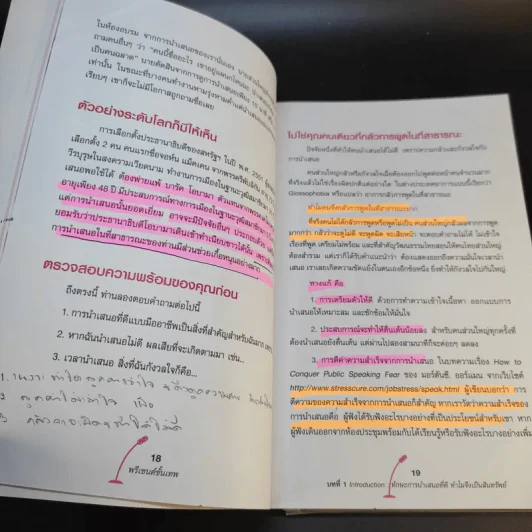 ในห้องอบรม จากการนำเสนอของเรานั่นเอง
ถามคนอื่นๆ ว่า "คนนี้ชื่ออะไร เขาอยู่แผนกไหนนะ
เป็นคนฉลาด"
เท่านั้น ในขณะที่บางคนทำงานหามรุ่งหามค่ำ
เรียบๆ เขาก็จะไม่มีโอกาสถูกถามชื่อเลย
ตัวอย่างระดับโลกก็มีให้เห็น
การเลือกตั้งประธานาธิบดีของสหรัฐฯ ในปี พ.ศ. 2551
เลือกตั้ง 2 คน คนแรกชื่อจอห์น แม็คเคน จากพรรครีพับลิกัน
วีรบุรุษในสงครามเวียดนาม ทำงานการเมืองในฐานะวุฒิสมาชิก
เสนอพอใช้ได้ ต้องพ่ายแพ้ บารัค โอบามา
อายุเพียง 48 ปี มีประสบการณ์ทางการเมืองในฐานะวุฒิสมาชิก
แต่การนำเสนอนั้นยอดเยี่ยม อาจจะมีปัจจัยอื่นๆ ประกอบด้วย
ยอมรับว่าประธานาธิบดีโอบามาเดินเข้าทำเนียบขาวได้นั้น
การนำเสนอในที่สาธารณะของท่านมีส่วนช่วยเกื้อหนุนอย่างมาก
ตรวจสอบความพร้อมของคุณก่อน
ถึงตรงนี้ ท่านลองตอบคำถามต่อไปนี้
1. การนำเสนอที่ดีแบบมืออาชีพเป็นสิ่งที่สำคัญสำหรับฉันมาก
2. หากฉันนำเสนอไม่ดี ผลเสียที่จะเกิดตามมา เช่น...
3. เวลานำเสนอ สิ่งที่ฉันกังวลใจก็คือ...
18
พรีเซนต์ขั้นเทพ
ไม่ใช่คุณคนเดียวที่กลัวการพูดในที่สาธารณะ
ปัจจัยหนึ่งที่ทำให้คนนำเสนอได้ไม่ดี เพราะความกลัวและกังวลใจกับ
การนำเสนอ
คนส่วนใหญ่กลัวหรือกังวลใจเมื่อต้องออกไปพูดต่อหน้าคนจำนวนมาก
ที่จริงแล้วไม่ใช่เรื่องผิดปกติแต่อย่างใด ในต่างประเทศอาการแบบนี้เรียกว่า
Glossophobia หรือแปลว่า อาการกลัวการพูดในที่สาธารณะ
ทำไมคนจึงกลัวการพูดในที่สาธารณะมาก
ที่จริงคนไม่ได้กลัวการพูดหรือพูดไม่เป็น คนส่วนใหญ่กลัวผลจากการพูด
มากกว่า กลัวว่าจะพูดไม่ดี จะพูดผิด จะเสียหน้า จะตอบคำถามไม่ได้ ไม่เข้าใจ
เรื่องที่พูด เตรียมไม่พร้อม และที่สำคัญวัฒนธรรมไทยสอนให้คนไทยส่วนใหญ่
ต้องสำรวม แต่เราก็ได้รับคำแนะนำว่า ต้องแสดงออกถึงความมั่นใจเวลานำ
เสนอ เราเลยเกิดความขัดแย้งในตนเองอีกข้อหนึ่ง จึงทำให้กังวลใจไปกันใหญ่
ทางแก้ คือ
1. การเตรียมตัวให้ดี ด้วยการทำความเข้าใจเนื้อหา ออกแบบการ
นำเสนอให้เหมาะสม และซักซ้อมให้มั่นใจ
2. ประสบการณ์จะทำให้ตื่นเต้นน้อยลง สำหรับคนส่วนใหญ่ทุกครั้งที่
ต้องนำเสนอยังตื่นเต้น แต่ผ่านไปสองสามนาทีก็จะค่อยๆ ลดลง
3. การตีค่าความสำเร็จจากการนำเสนอ ในบทความเรื่อง How to
Conquer Public Speaking Fear ของ มอร์ตันซี. ออร์แมน จากเว็บไซต์
http://www.stresscure.com/jobstress/speak.html ผู้เขียนบอกว่า การ
ตีความของความสำเร็จจากการนำเสนอก็สำคัญ หากเราวัดว่าความสำเร็จของ
การนำเสนอคือ ผู้ฟังได้รับฟังอะไรบางอย่างที่เป็นประโยชน์สำหรับเขา หาก
ผู้ฟังเดินออกจากห้องประชุมพร้อมกับได้เรียนรู้หรือรับฟังอะไรบางอย่างเพิ่ม
19
บทที่ 1 Introduction : ทักษะการนำเสนอที่ดี ทำไมจึงเป็นสินทรัพย์